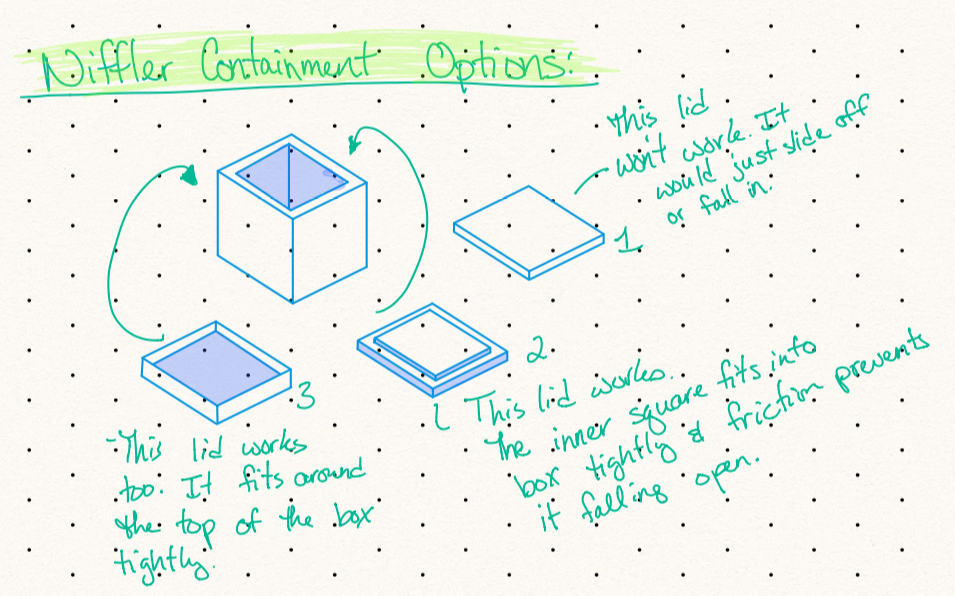 Niffler Containment Options:
This lid
won't work. It
would just slide off
or fall in.
1.
2.
This lid works.
The inner square fits into
box tightly & friction prevents
it falling open.
3
-This lid works
too. It fits around
the top of the box
tightly.